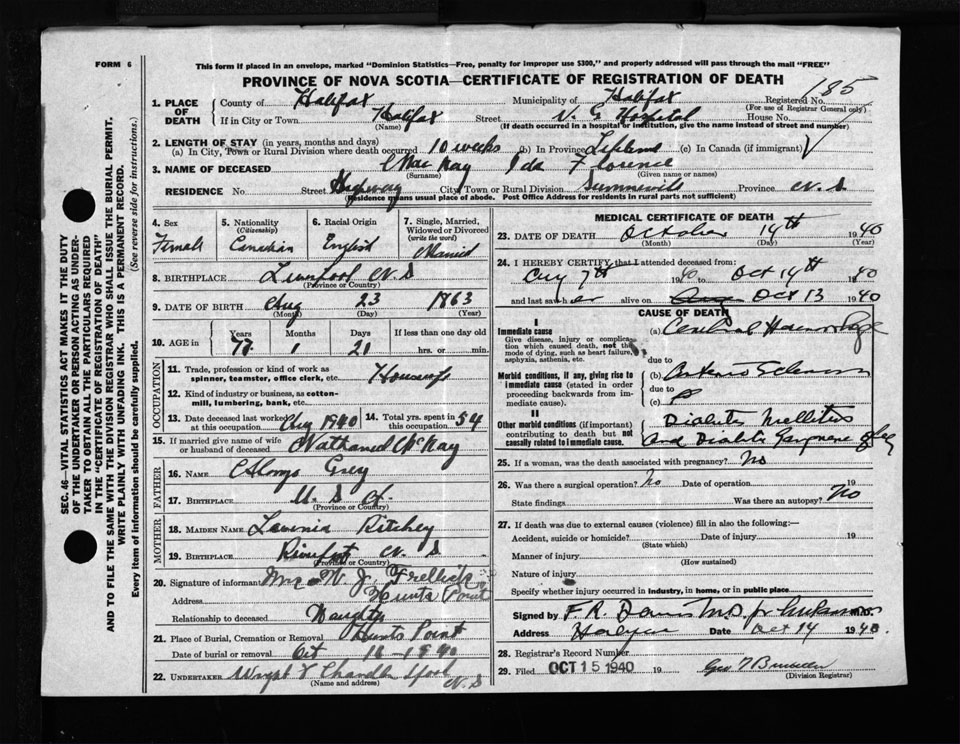 FORM 6
This form if placed in an envelope, marked "Dominion Statistics—Free, penalty for improper use $300," and properly addressed will pass through the mail "FREE"
PROVINCE OF NOVA SCOTIA—CERTIFICATE OF REGISTRATION OF DEATH
1. PLACE OF DEATH County of Halifax Municipality of Halifax Registered No. 185
(For use of Registrar General only)
If in City or Town Halifax Street V. G Hospital House No.
(Name) (If death occurred in a hospital or institution, give the name instead of street and number)
2. LENGTH OF STAY (in years, months and days)
(a) In City, Town or Rural Division where death occurred 10 weeks (b) In Province Lifetime (c) In Canada (if immigrant)
3. NAME OF DECEASED MacKay Ida Florence
(Surname) (Given name or names)
RESIDENCE No. Street Highway City, Town or Rural Division Summerville Province N. S
(Residence means usual place of abode. Post Office Address for residents in rural parts not sufficient)
SEC. 46—VITAL STATISTICS ACT MAKES IT THE DUTY
OF THE UNDERTAKER OR PERSON ACTING AS UNDER-
TAKER TO OBTAIN ALL THE PARTICULARS REQUIRED
IN THE "CERTIFICATE OF REGISTRATION OF DEATH"
AND TO FILE THE SAME WITH THE DIVISION REGISTRAR WHO SHALL ISSUE THE BURIAL PERMIT.
WRITE PLAINLY WITH UNFADING INK. THIS IS A PERMANENT RECORD.
Every item of Information should be carefully supplied. (See reverse side for instructions.)
4. Sex Female
5. Nationality (Citizenship) Canadian
6. Racial Origin English
7. Single, Married, Widowed or Divorced (write the word) Married
8. BIRTHPLACE Liverpool N. S
(Province or Country)
9. DATE OF BIRTH Aug 23 1863
(Month) (Day) (Year)
10. AGE in Years 77 Months 1 Days 21 If less than one day old hrs. or min.
OCCUPATION
11. Trade, profession or kind of work as spinner, teamster, office clerk, etc. Housewife
12. Kind of industry or business, as cotton-mill, lumbering, bank, etc.
13. Date deceased last worked at this occupation Aug 1940
14. Total yrs. spent in this occupation 54
15. If married give name of wife or husband of deceased Nathaniel McKay
FATHER
16. NAME Alonzo Grey
17. BIRTHPLACE U. S A.
(Province or Country)
MOTHER
18. MAIDEN NAME Lavinia Ritchey
19. BIRTHPLACE Riverport N. S
(Province or Country)
20. Signature of informant Mrs W. J. Frellick
Address Hunts Point
Relationship to deceased Daughter
21. Place of Burial, Cremation or Removal Hunts Point
Date of burial or removal Oct 16-1940
22. UNDERTAKER Wright Chandler N. S
(Name and address)
MEDICAL CERTIFICATE OF DEATH
23. DATE OF DEATH October 14th 1940
(Month) (Day) (Year)
24. I HEREBY CERTIFY that I attended deceased from:
Aug 7th 1940 to Oct 14th 1940
and last saw her alive on Oct 13 1940
CAUSE OF DEATH
I
Immediate cause (a) Cerebral Haemorrhage
Give disease, injury or complication which caused death, not the mode of dying, such as heart failure, asphyxia, asthenia, etc.
due to
Morbid conditions, if any, giving rise to immediate cause (stated in order proceeding backwards from immediate cause). (b) Arterio Sclerosis
due to
(c)
II
Other morbid conditions (if important) contributing to death but not causally related to immediate cause.
Diabetes Mellitus
and Diabetic Gangrene of leg
25. If a woman, was the death associated with pregnancy? No
26. Was there a surgical operation? No Date of operation 19
State findings Was there an autopsy? No
27. If death was due to external causes (violence) fill in also the following:—
Accident, suicide or homicide? Date of injury 19
(State which)
Manner of injury
(How sustained)
Nature of injury
Specify whether injury occurred in industry, in home, or in public place
Signed by F. R. Davis M.D. M.D.
Address Halifax Date Oct 14 1940
28. Registrar's Record Number
29. Filed OCT 15 1940 19
(Division Registrar)